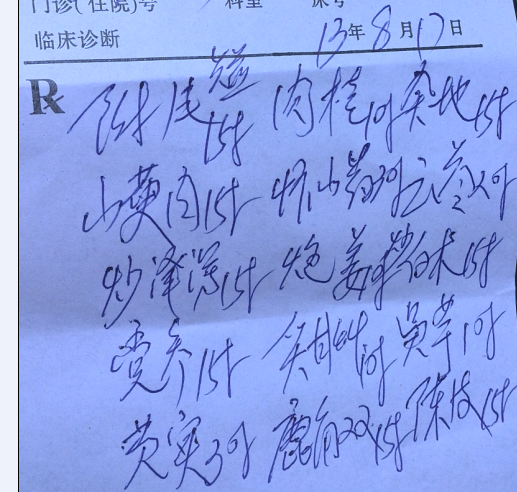 门诊(住院)号 科室 床号
临床诊断 13年8月17日
R 附片 15g 肉桂10g 熟地15g
山萸肉15g 怀山药30g 云苓20g
炒泽泻15g 炮姜 炒白术15g
党参15g 炙甘草10g 吴芋10g
芡实30g 鹿角 15g 陈皮15g